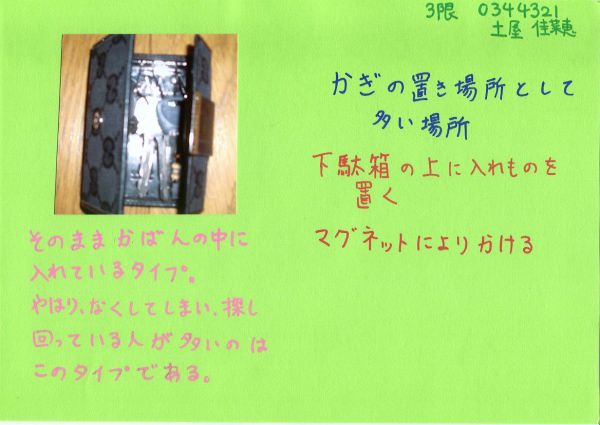 3限 0344321
土屋 佳菜恵
かぎの置き場所として
多い場所
下駄箱の上に入れものを
置く
マグネットによりかける
そのままかばんの中に
入れているタイプ。
やはり、なくしてしまい、探し
回っている人が多いのは
このタイプである。